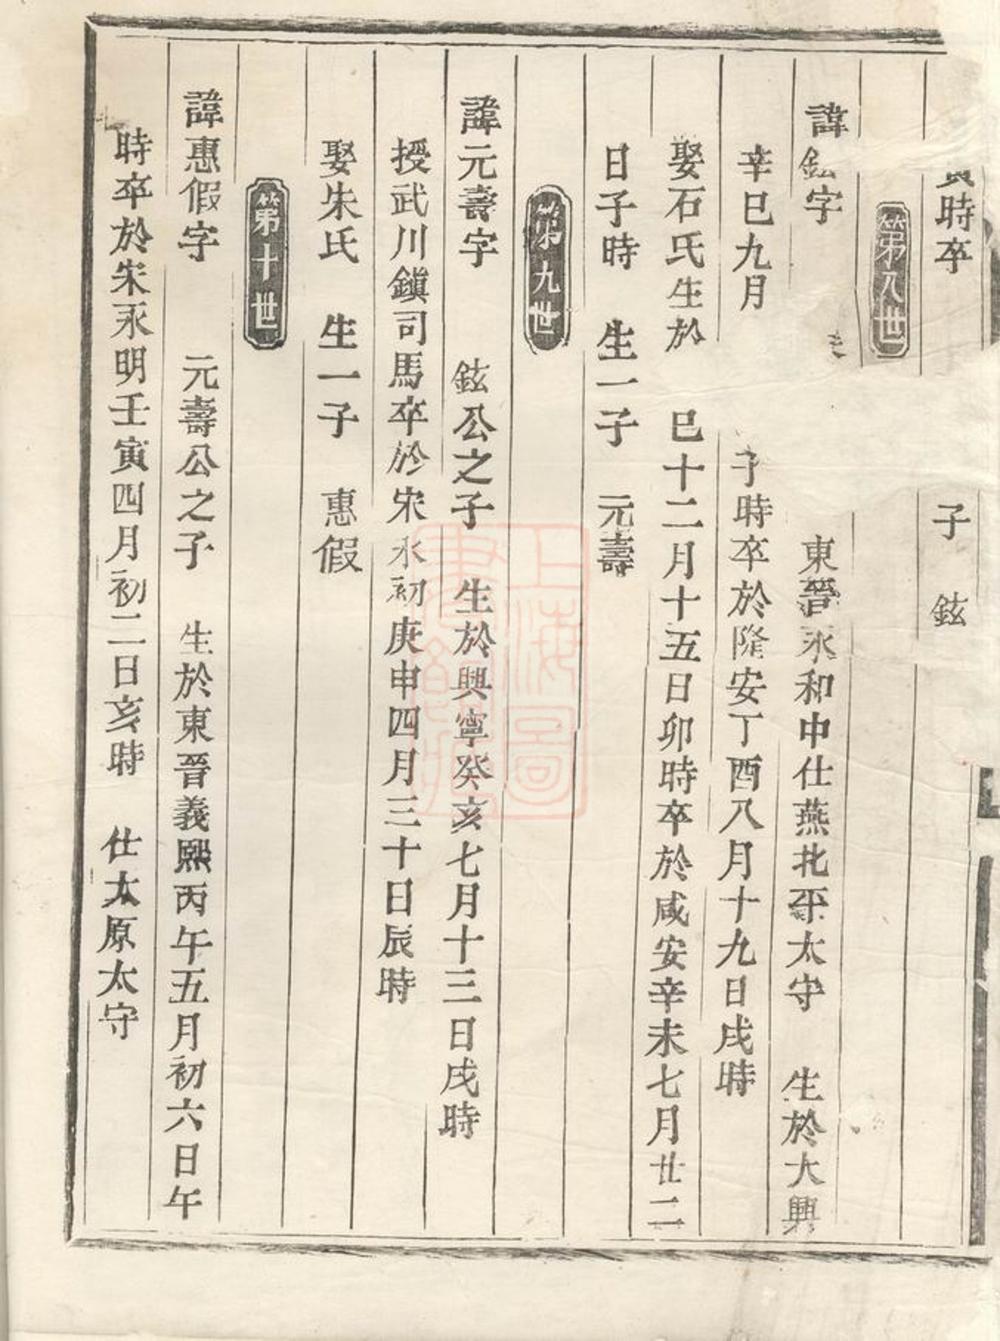 時卒 子 鉉
第八世
諱鉉字 東晉永和中仕燕北平太守 生於大興
辛巳九月 子時卒於隆安丁酉八月十九日戌時
娶石氏生於 巳十二月十五日卯時卒於咸安辛未七月廿二
日子時 生一子 元壽
第九世
諱元壽字 鉉公之子 生於興寧癸亥七月十三日戌時
授武川鎭司馬卒於宋永初庚申四月三十日辰時
娶朱氏 生一子 惠假
第十世
諱惠假字 元壽公之子 生於東晉義熙丙午五月初六日午
時卒於宋永明壬寅四月初二日亥時 仕太原太守
上海圖書館藏